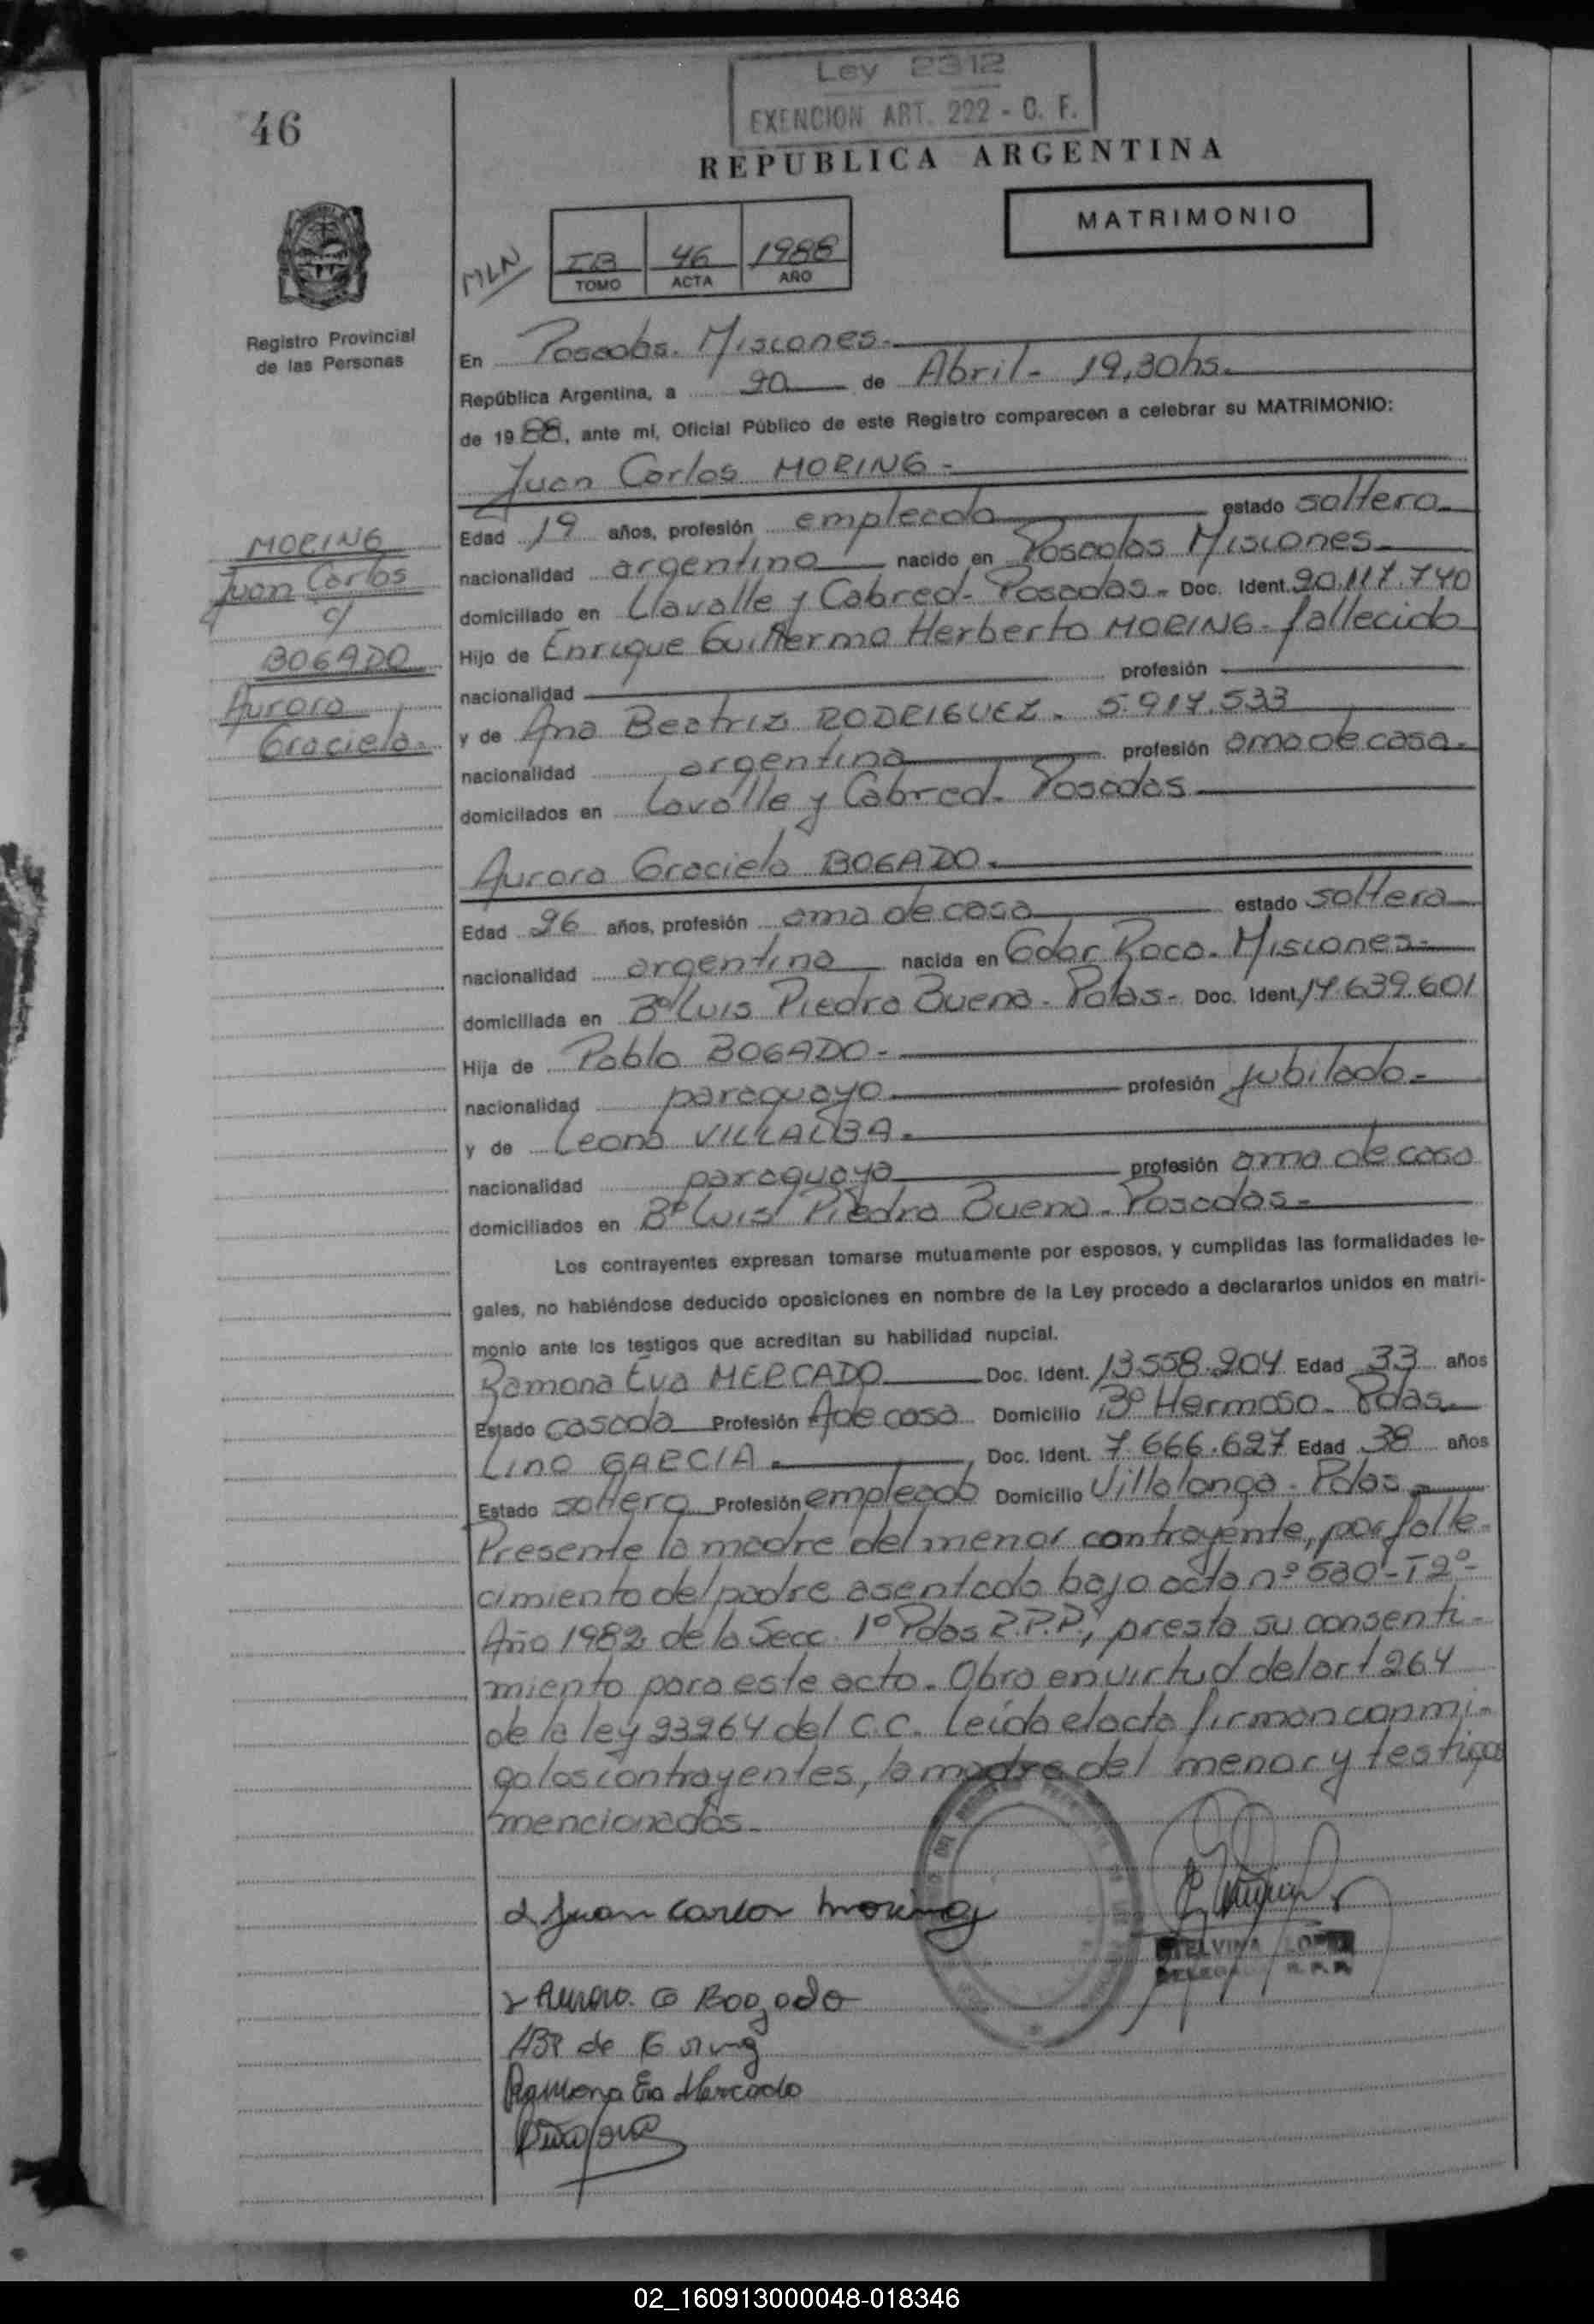 Ley 2312
EXENCION ART. 222 - C. F.
46
REPUBLICA ARGENTINA
MATRIMONIO
MLN
IB 46 1988
TOMO ACTA AÑO
Registro Provincial
de las Personas
En Posadas. Misiones.
República Argentina, a 20 de Abril - 19,30hs.
de 1988, ante mí, Oficial Público de este Registro comparecen a celebrar su MATRIMONIO:
Juan Carlos MORING -
Edad 19 años, profesión empleado estado soltero
nacionalidad argentino nacido en Posadas Misiones
domiciliado en Llavalle y Cabred - Posadas - Doc. Ident. 20.117.740
Hijo de Enrique Guillermo Herberto MORING - fallecido
nacionalidad profesión
y de Ana Beatriz RODRIGUEZ - 5.917.533
nacionalidad argentina profesión ama de casa.
domiciliados en Lavalle y Cabred - Posadas
MORING
Juan Carlos
c/
BOGADO
Aurora
Graciela.
Aurora Graciela BOGADO.
Edad 26 años, profesión ama de casa estado soltera
nacionalidad argentina nacida en Gdor. Roca. Misiones.
domiciliada en Bº Luis Piedra Buena - Pdas - Doc. Ident. 14.639.601
Hija de Pablo BOGADO -
nacionalidad paraguayo profesión jubilado -
y de Leona VILLALBA.
nacionalidad paraguaya profesión ama de casa
domiciliados en Bº Luis Piedra Buena - Posadas -
Los contrayentes expresan tomarse mutuamente por esposos, y cumplidas las formalidades le-
gales, no habiéndose deducido oposiciones en nombre de la Ley procedo a declararlos unidos en matri-
monio ante los testigos que acreditan su habilidad nupcial.
Ramona Eva MERCADO Doc. Ident. 13.558.204 Edad 33 años
Estado casada Profesión A de casa Domicilio Bº Hermoso - Pdas.
Lino GARCIA. Doc. Ident. 7.666.627 Edad 38 años
Estado soltero Profesión empleado Domicilio Villalonga - Pdas
Presente la madre del menor contrayente, por falle-
cimiento del padre asentado bajo acta nº 530 - T 2º -
Año 1982 de la Secc. 1º Pdas R.P.P., presta su consenti-
miento para este acto. Obra en virtud del art 264
de la ley 23264 del C.C. Leída el acta firman conmi-
go los contrayentes, la madre del menor y testigos
mencionados.
Juan Carlos Moring
Aurora. G Bogado
ABR de
Ramona Eva Mercado
ETELVINA LOPEZ
R. P. P.
02_160913000048-018346